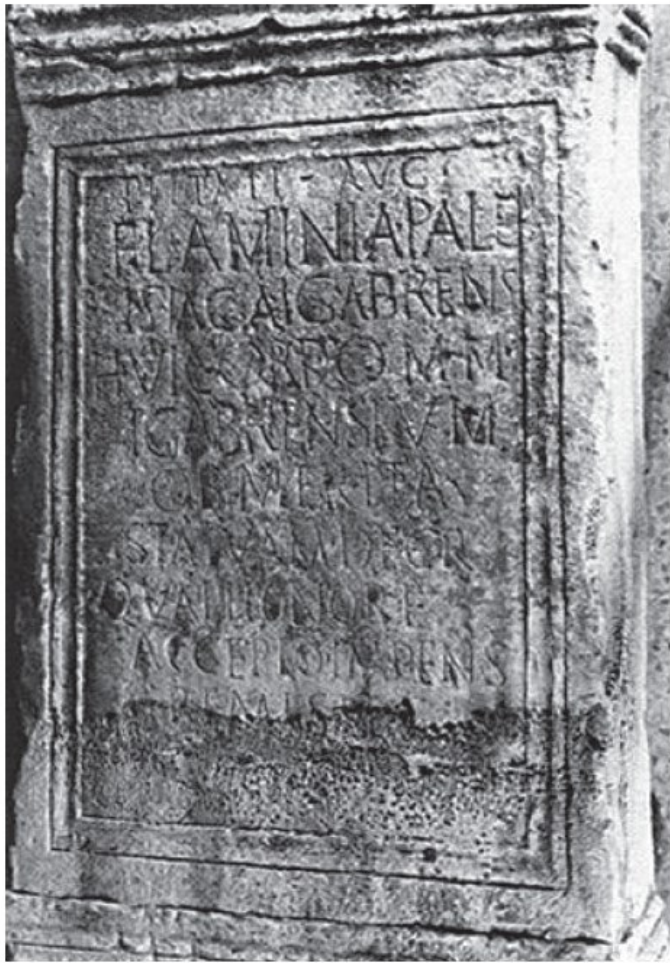 PIETATI · AVG
FLAMINIA PALE
IGABRENS
HVIC ORDO M · M
IGABRENSIVM
OB MERITA
STATVAM DECR
QVAE HONORE
ACCEPTO IMPENS
REMIS